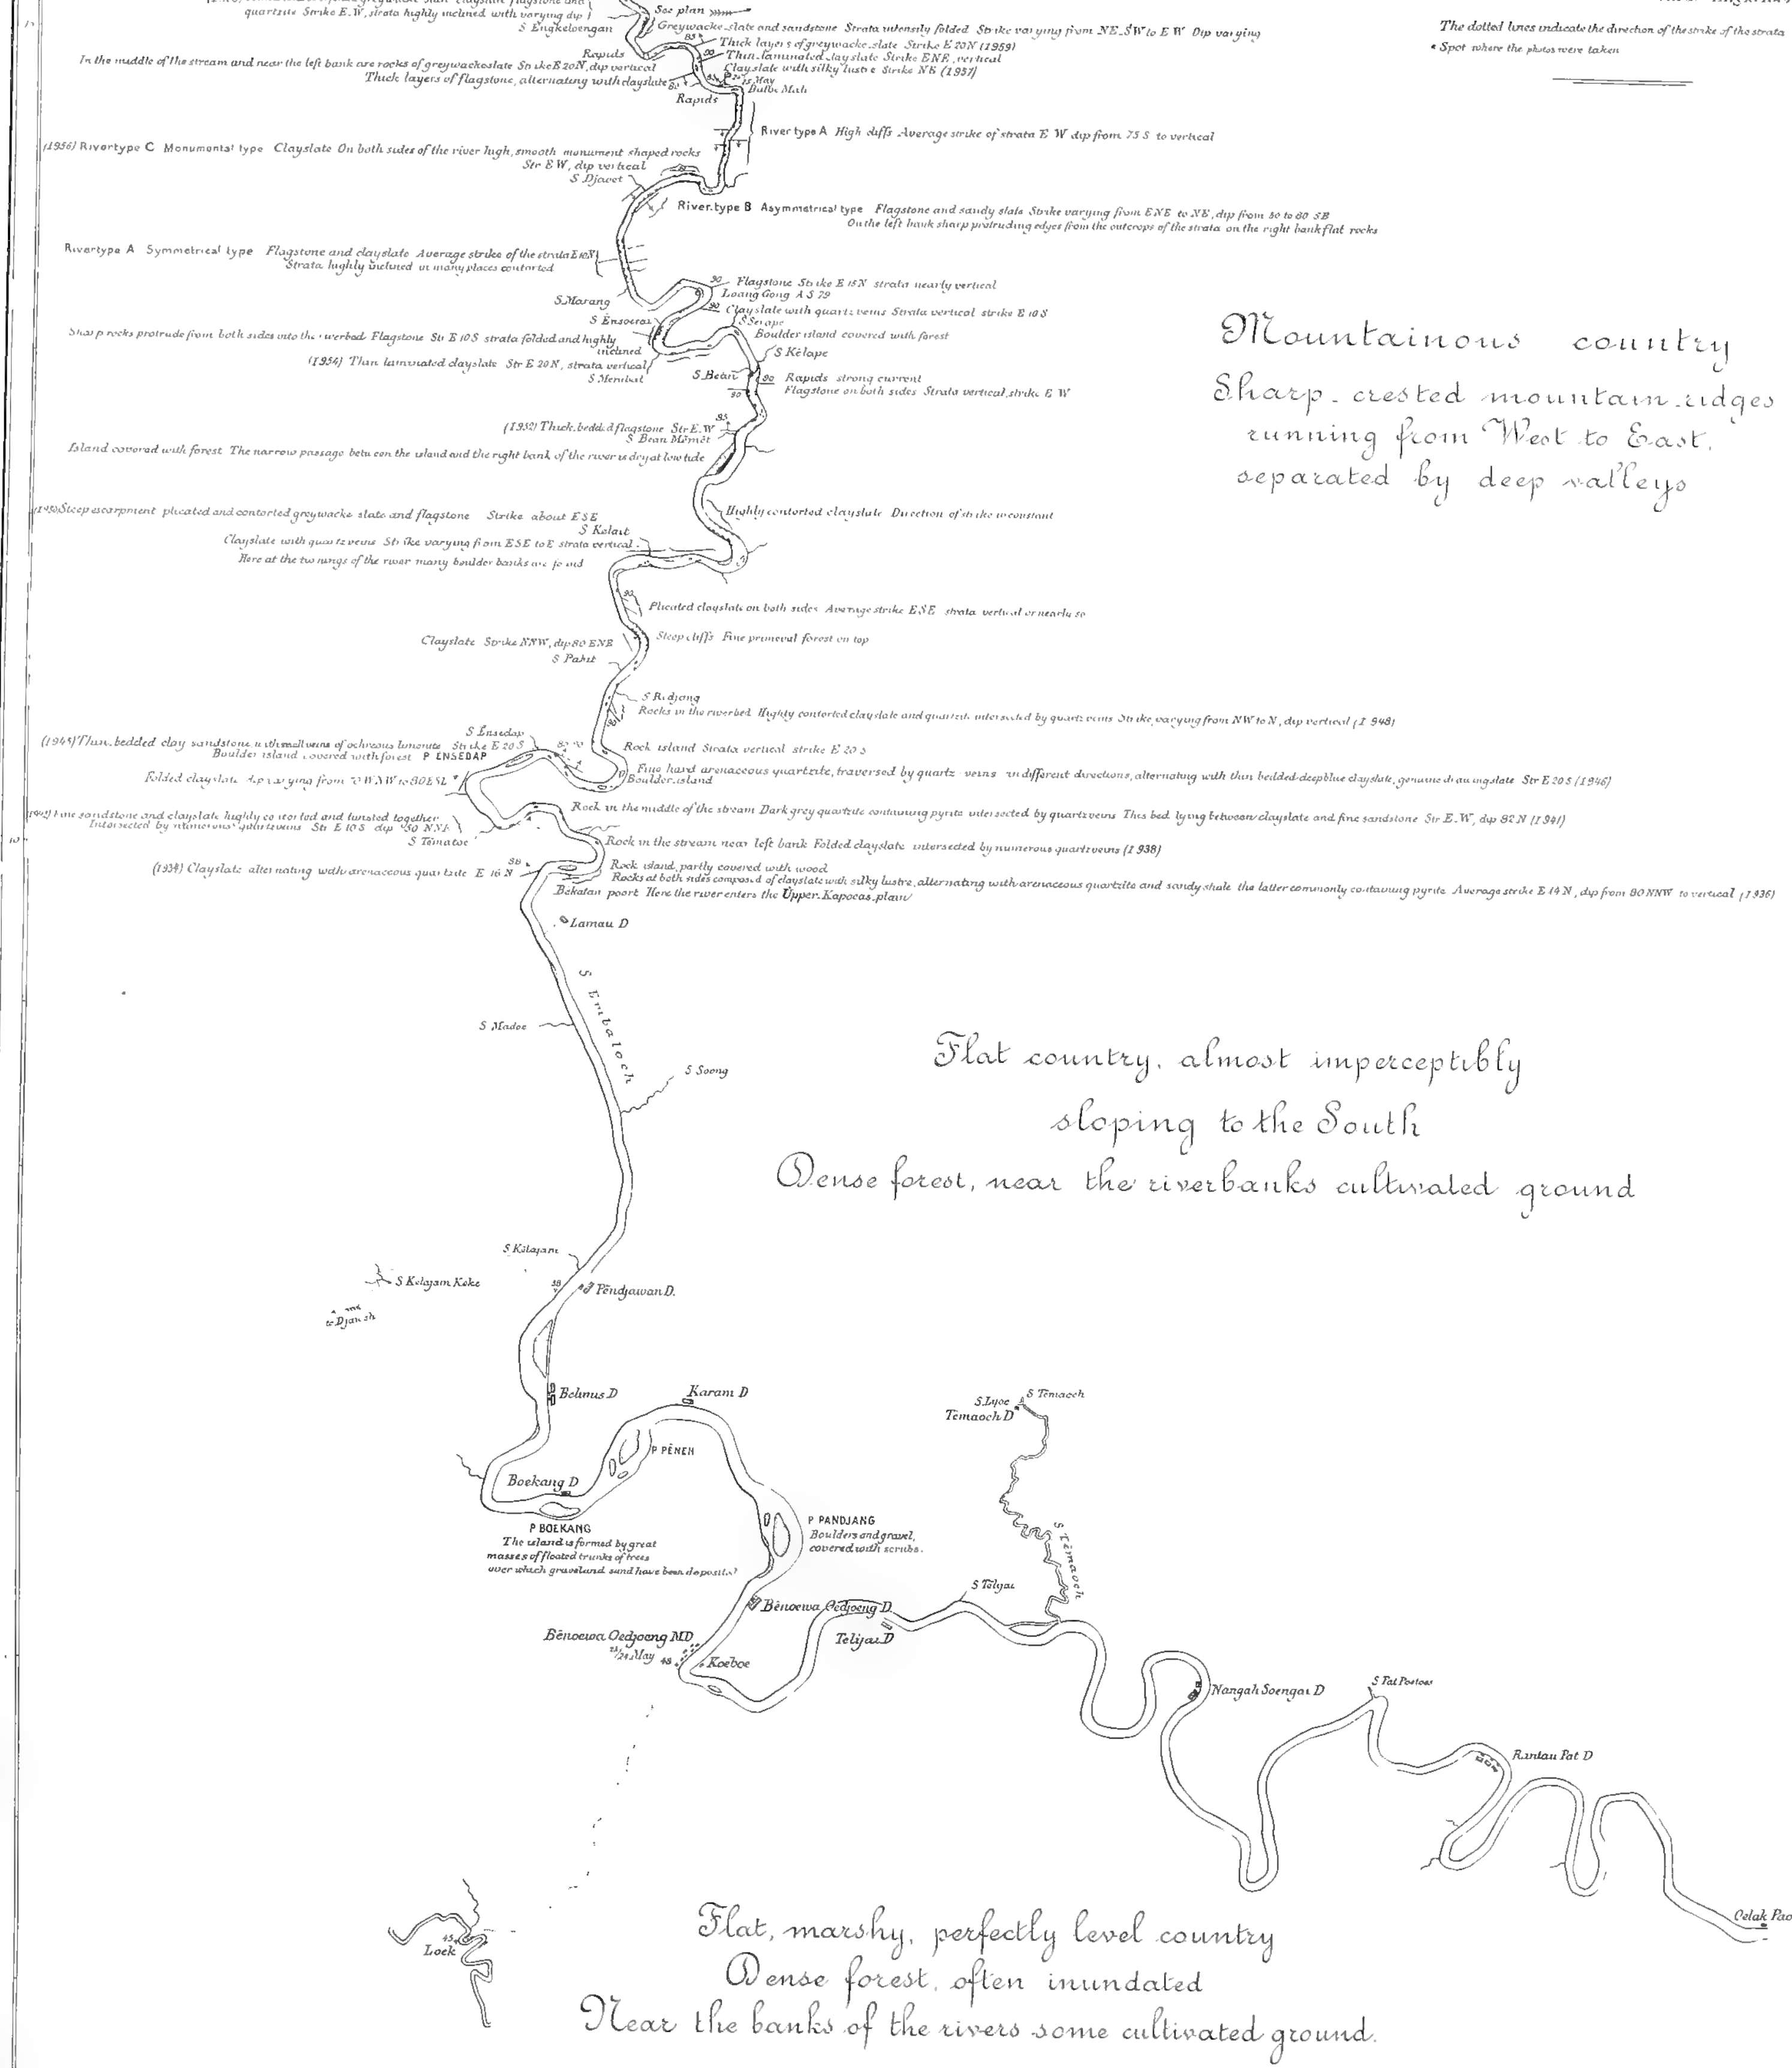 quartzite Strike E.W, strata highly inclined with varying dip
S Engkeloengan
See plan
Greywacke-slate and sandstone Strata intensily folded Strike varying from NE-SW to E W Dip varying
The dotted lines indicate the direction of the strike of the strata
Spot where the photos were taken
85
Thick layers of greywacke-slate Strike E 20N (1959)
Rapids
90
Thin laminated clayslate Strike ENE, vertical
In the middle of the stream and near the left bank are rocks of greywackeslate Strike E 20N, dip vertical
Clayslate with silky lustre Strike NE (1957)
Thick layers of flagstone, alternating with clayslate
80
May
Rapids
River type A High cliffs Average strike of strata E W dip from 75 S to vertical
(1956) Rivertype C Monumental type Clayslate On both sides of the river high, smooth monument shaped rocks
Str E W, dip vertical
S Djavet
River.type B Asymmetrical type Flagstone and sandy slate Strike varying from ENE to NE, dip from 50 to 80 SE
On the left bank sharp protruding edges from the outcrops of the strata on the right bank flat rocks
Rivertype A Symmetrical type Flagstone and clayslate Average strike of the strata E 10N
Strata highly inclined in many places contorted
90
Flagstone Strike E 15N strata nearly vertical
Loang Gong A S 79
S Marang
90
Clayslate with quartz veins Strata vertical strike E 10 S
S Ensoerai
S Serape
Sharp rocks protrude from both sides into the riverbed Flagstone Str E 10S strata folded and highly
inclined
Boulder island covered with forest
(1954) Thin laminated clayslate Str E 20N, strata vertical
S Kělape
S Merubat
S Bean
90
Rapids strong current
Flagstone on both sides Strata vertical, strike E W
90
Mountainous country
Sharp-crested mountain-ridges
running from West to East,
separated by deep valleys
85
(1952) Thick.bedded flagstone Str E.W
S Bean Měmět
Island covered with forest The narrow passage between the island and the right bank of the river is dry at low tide
(1950) Steep escarpment plicated and contorted greywacke slate and flagstone Strike about ESE
Highly contorted clayslate Direction of strike inconstant
S Kelait
Clayslate with quartzveins Strike varying from ESE to E strata vertical
Here at the turnings of the river many boulder banks are found
90
Plicated clayslate on both sides Average strike ESE strata vertical or nearly so
Clayslate Strike NNW, dip 80 ENE
Steep cliffs Fine primeval forest on top
S Pahit
S Ridjang
Rocks in the riverbed Highly contorted clayslate and quartzite intersected by quartz veins Strike varying from NW to N, dip vertical (I 948)
S Ensedap
(1945) Thin.bedded clay sandstone with small veins of ochreous limonite Strike E 20 S
Rock island Strata vertical strike E 20 S
Boulder island covered with forest P ENSEDAP
Fine hard arenaceous quartzite, traversed by quartz-veins in different directions, alternating with thin bedded deepblue clayslate, genuine drawingslate Str E 20 S (1946)
Boulder.island
Folded clayslate dip varying from 70 WNW to 80 ESE
Rock in the middle of the stream Dark grey quartzite containing pyrite intersected by quartzveins This bed lying between clayslate and fine sandstone Str E.W, dip 82 N (1941)
Fine sandstone and clayslate highly contorted and twisted together
Intersected by numerous quartzveins Str E 10 S dip 50 NNE
S Tematoe
Rock in the stream near left bank Folded clayslate intersected by numerous quartzveins (I 938)
38
(1934) Clayslate alternating with arenaceous quartzite E 16 N
Rock island, partly covered with wood
Rocks at both sides composed of clayslate with silky lustre, alternating with arenaceous quartzite and sandy shale the latter commonly containing pyrite Average strike E 14 N, dip from 80 NNW to vertical (I 936)
Bekatan poort Here the river enters the Upper-Kapoeas.plain
Lamau D
S Embaloeh
S Madoe
S Soeng
Flat country, almost imperceptibly
sloping to the South
Dense forest, near the riverbanks cultivated ground
S Kělajam
S Kelajam Keke
38
Pěndjawan D.
to Djaweh
Belimus D
Karam D
S Těmaoeh
S.Lyoe
Temaoeh D
P PĚNEH
Boekang D
P BOEKANG
The island is formed by great
masses of floated trunks of trees
over which gravel and sand have been deposited
P PANDJANG
Boulders and gravel,
covered with scrubs.
S Těmaoeh
S Tělyai
Běnoewa Oedjoeng D.
Telijai D
Běnoewa Oedjoeng MD
23/24 May 48
Koeboe
Nangah Soengai D
S Pat Poetoes
Rantau Pat D
Oelak Pao
45
Loek
Flat, marshy, perfectly level country
Dense forest, often inundated
Near the banks of the rivers some cultivated ground.